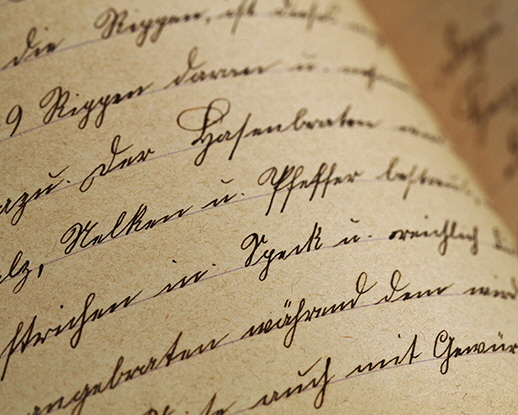 die Rippen, ist dieses
9 Rippen daran u. neh
azu. Der Hasenbraten
alz, Nelken u. Pfeffer bestreut,
strichen in Speck u. reichlich
angebraten während dem wird
auch mit Gewür